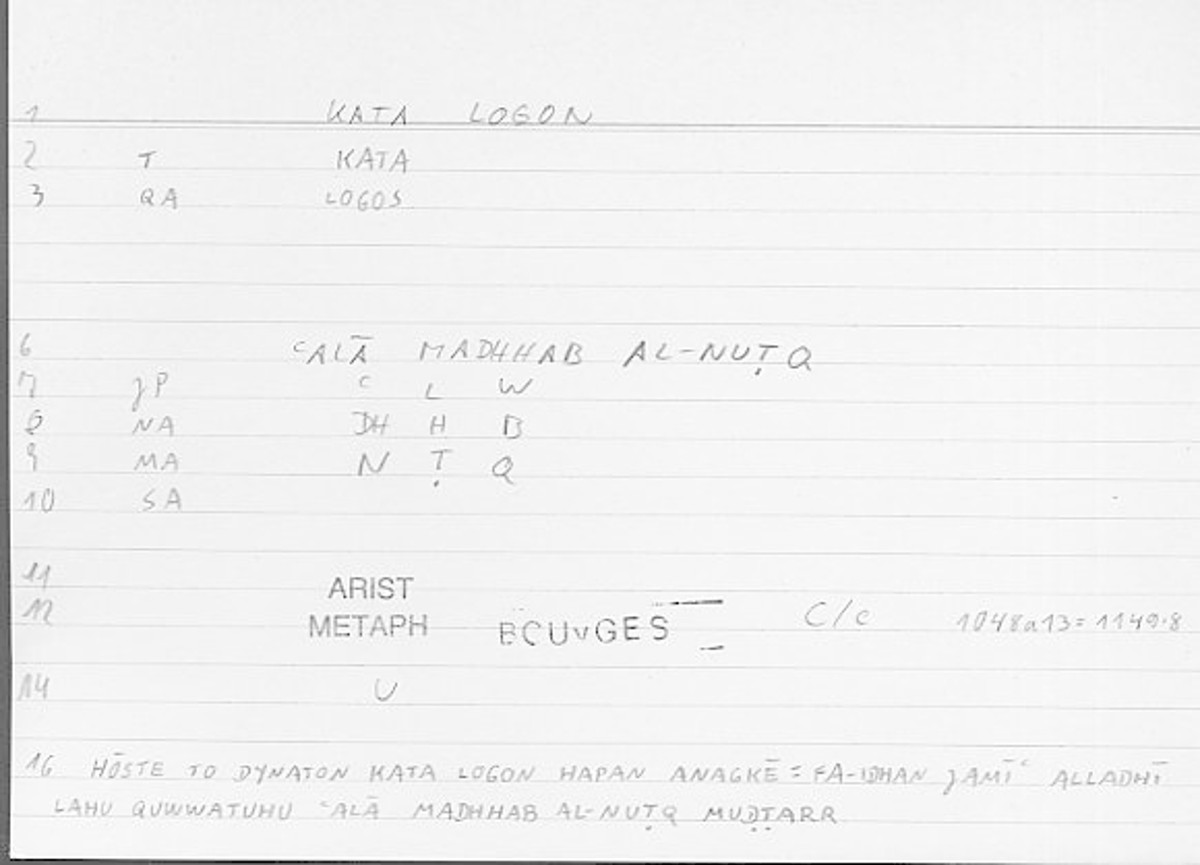 1 KATA LOGON
2 T KATA
3 QA LOGOS
6 ʿALĀ MADHHAB AL-NUṬQ
7 JP ʿ L W
8 NA DH H B
9 MA N Ṭ Q
10 SA
11 ARIST
12 METAPH BOUYGES C/c 1048a13=1149.8
14 U
16 HŌSTE TO DYNATON KATA LOGON HAPAN ANAGKĒ = FA-IDHAN JAMĪʿ ALLADHĪ
LAHU QUWWATUHU ʿALĀ MADHHAB AL-NUṬQ MUḌṬARR